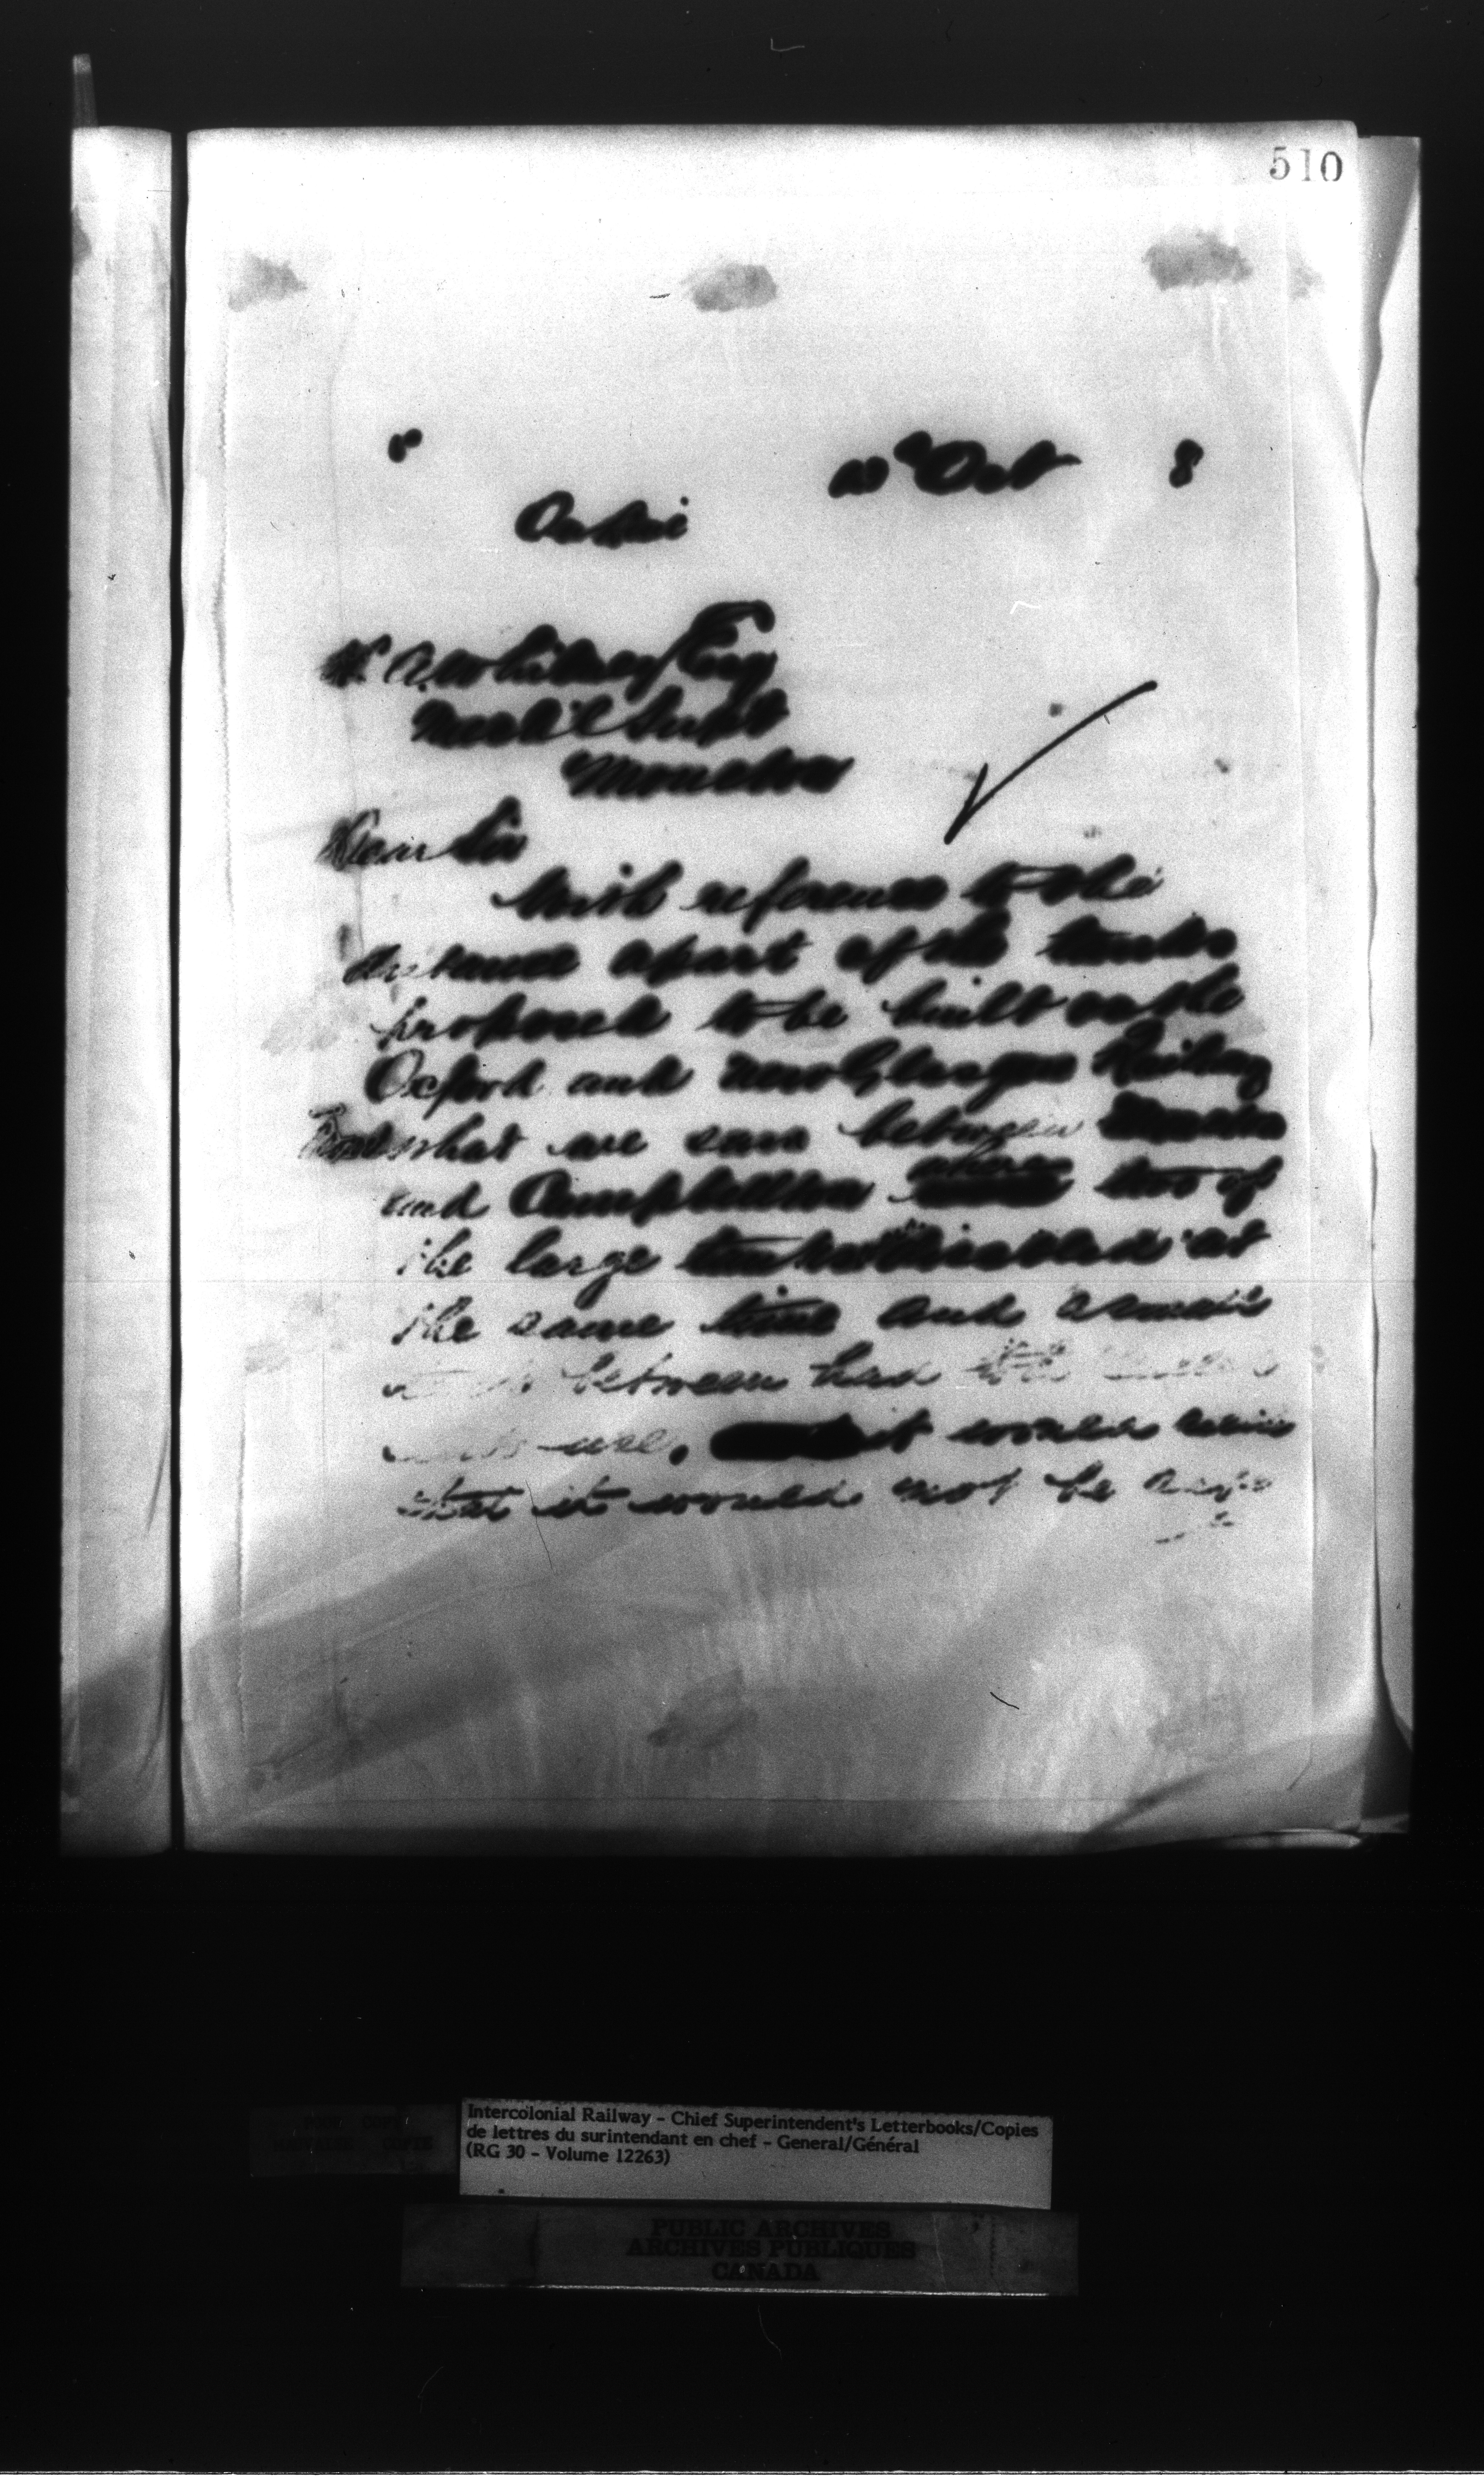 510
10th Oct 8
H. A. Whitney Esq
Mech'l Supt
Moncton
Dear Sir
With reference to the
distance apart of the tanks
proposed to be built on the
Oxford and New Glasgow Railway
From what we saw between Moncton
and Campbellton where two of
the large tanks disabled at
the same time and a small
between had
use, it would seem
that it would not be
Intercolonial Railway - Chief Superintendent's Letterbooks/Copies
de lettres du surintendant en chef - General/Général
(RG 30 - Volume 12263)
PUBLIC ARCHIVES
ARCHIVES PUBLIQUES
CANADA